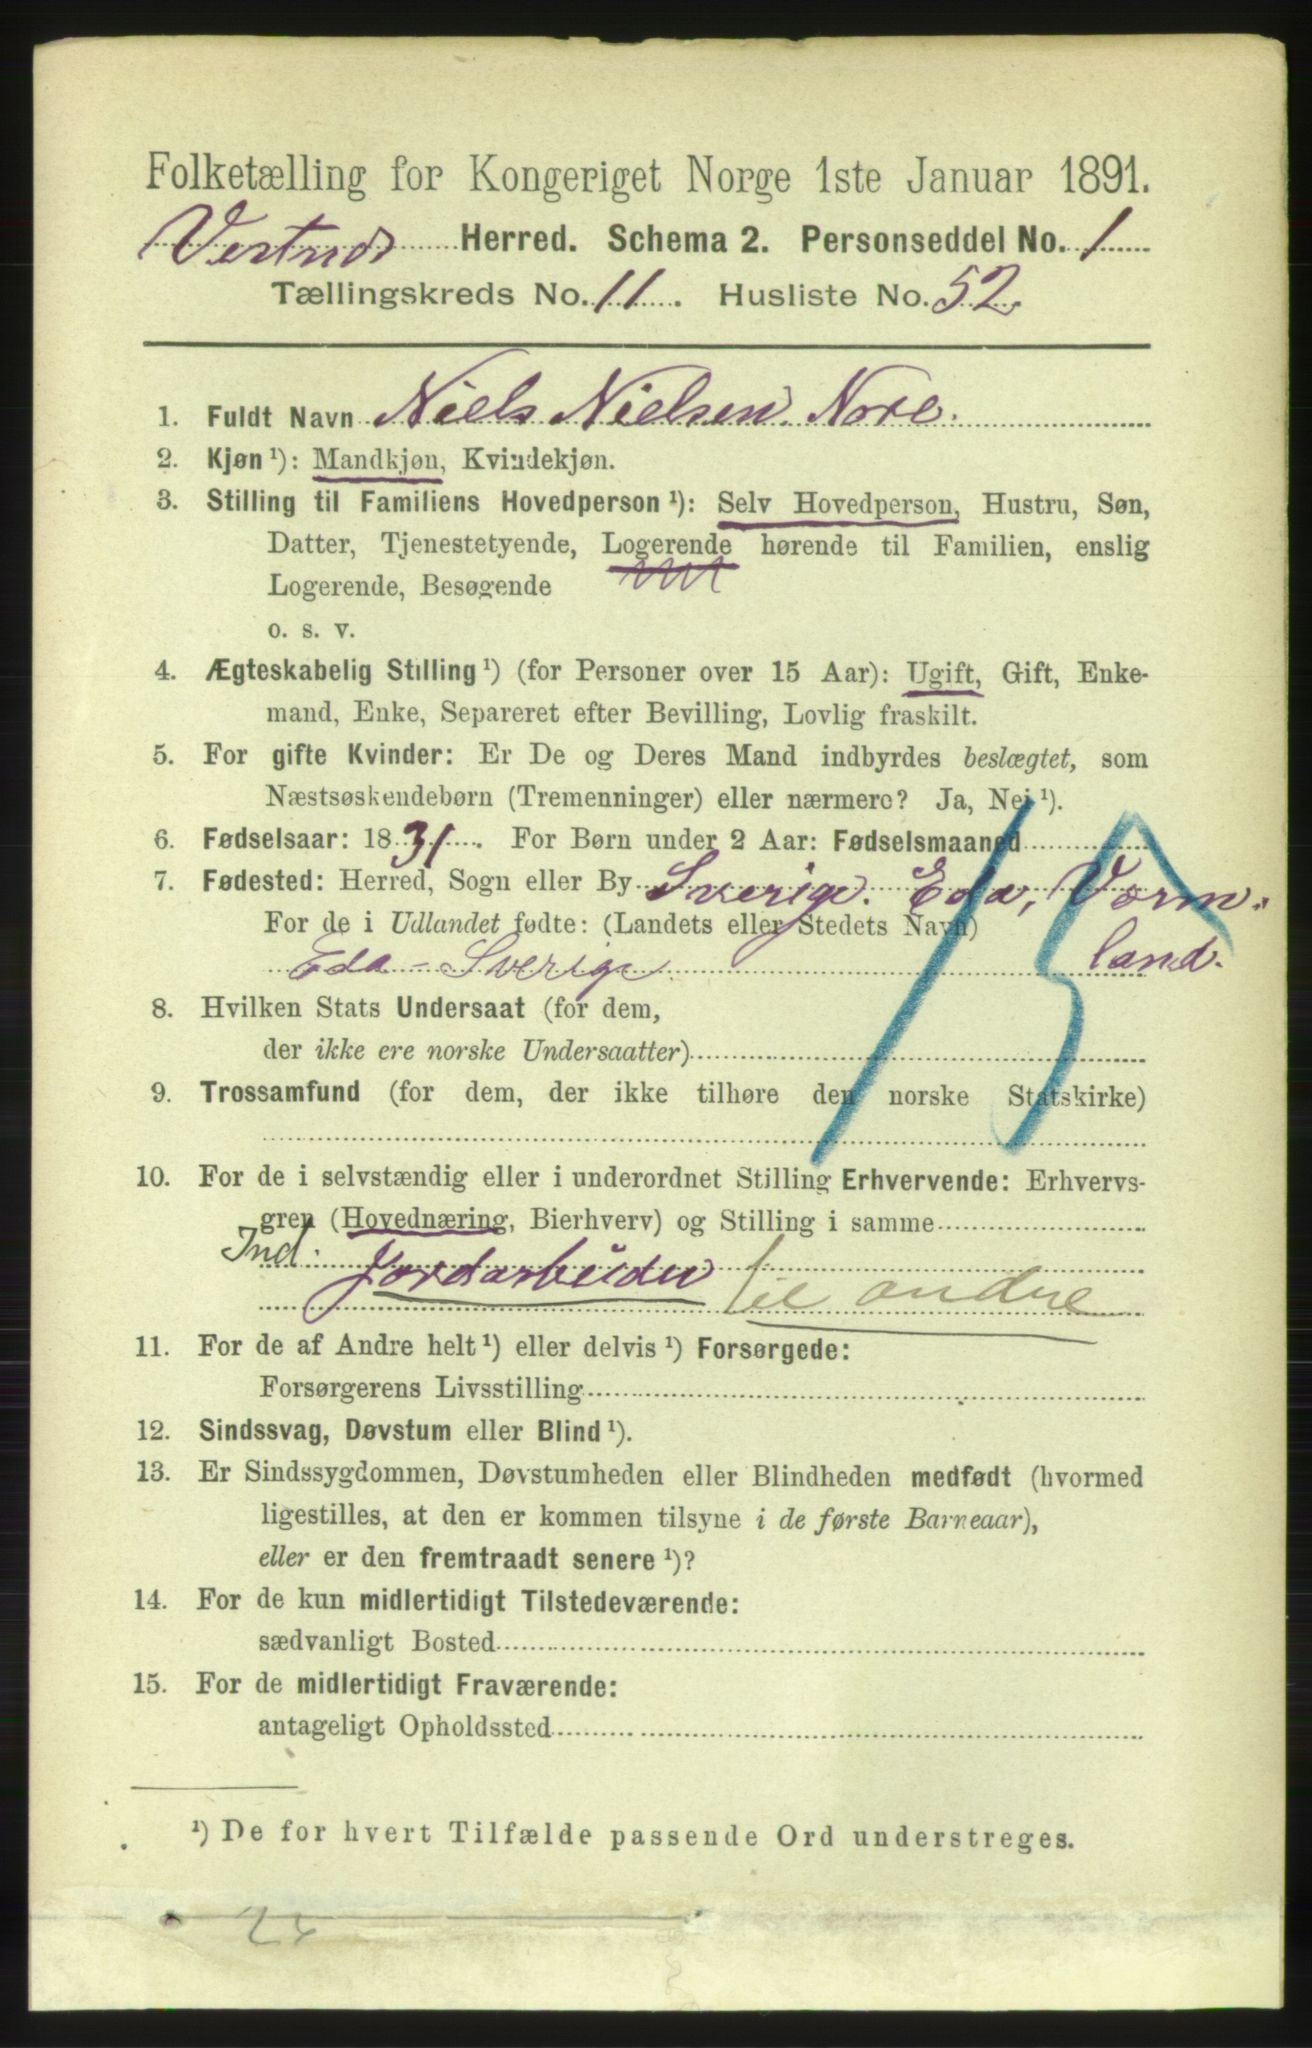 Folketælling for Kongeriget Norge 1ste Januar 1891.
Vestnes Herred. Schema 2. Personseddel No. 1
Tællingskreds No. 11. Husliste No. 52.
1. Fuldt Navn Niels Nielsen. Nore.
2. Kjøn ¹): Mandkjøn, Kvindekjøn.
3. Stilling til Familiens Hovedperson ¹): Selv Hovedperson, Hustru, Søn,
Datter, Tjenestetyende, Logerende hørende til Familien, enslig
Logerende, Besøgende
o. s. v.
4. Ægteskabelig Stilling ¹) (for Personer over 15 Aar): Ugift, Gift, Enke-
mand, Enke, Separeret efter Bevilling, Lovlig fraskilt.
5. For gifte Kvinder: Er De og Deres Mand indbyrdes beslægtet, som
Næstsøskendebørn (Tremenninger) eller nærmere? Ja, Nei ¹).
6. Fødselsaar: 1831. For Børn under 2 Aar: Fødselsmaaned
7. Fødested: Herred, Sogn eller By Sverige. Eda, Værm-
For de i Udlandet fødte: (Landets eller Stedets Navn)
Eda - Sverige land.
15
8. Hvilken Stats Undersaat (for dem,
der ikke ere norske Undersaatter)
9. Trossamfund (for dem, der ikke tilhøre den norske Statskirke)
10. For de i selvstændig eller i underordnet Stilling Erhvervende: Erhvervs-
gren (Hovednæring, Bierhverv) og Stilling i samme
Ind. Jordarbeider til andre
11. For de af Andre helt ¹) eller delvis ¹) Forsørgede:
Forsørgerens Livsstilling
12. Sindssvag, Døvstum eller Blind ¹).
13. Er Sindssygdommen, Døvstumheden eller Blindheden medfødt (hvormed
ligestilles, at den er kommen tilsyne i de første Barneaar),
eller er den fremtraadt senere ¹)?
14. For de kun midlertidigt Tilstedeværende:
sædvanligt Bosted
15. For de midlertidigt Fraværende:
antageligt Opholdssted
¹) De for hvert Tilfælde passende Ord understreges.